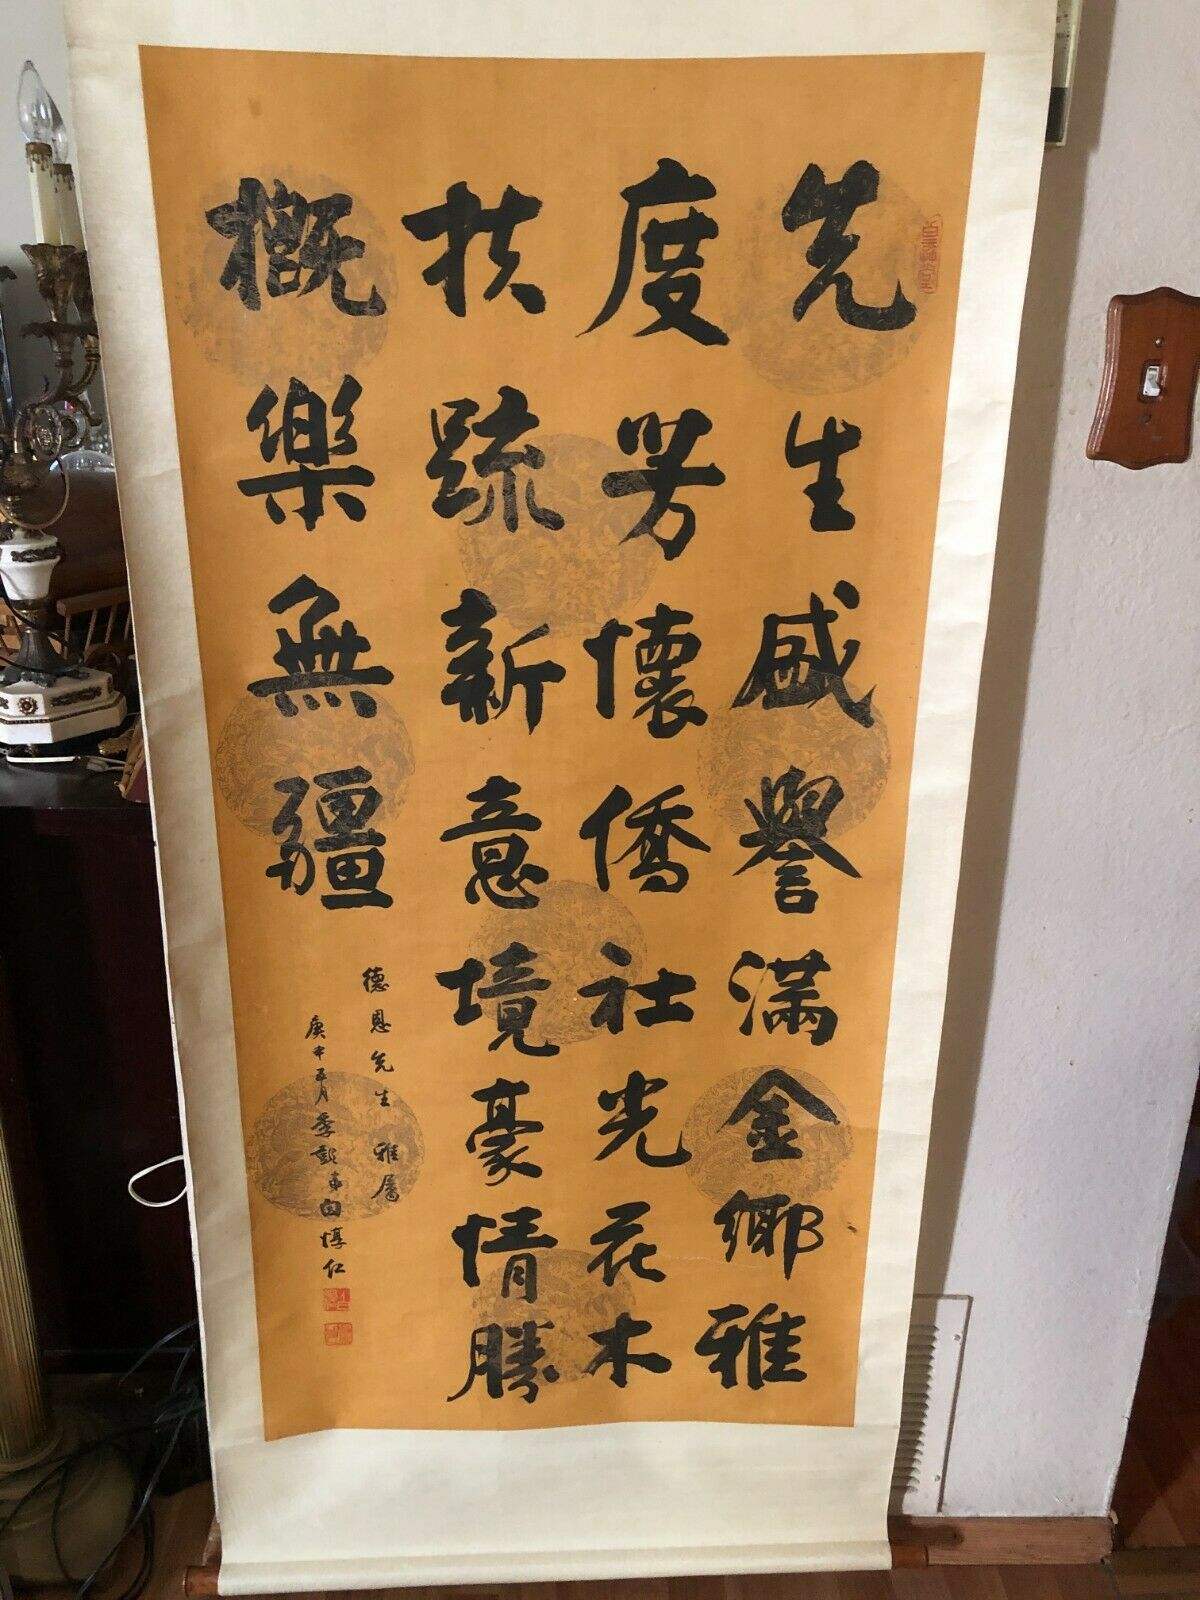 先生盛譽滿金鄉雅
度芳懷僑社光花木
扶疏新意境豪情勝
概樂無疆
德恩先生雅屬
庚申五月
惇仁